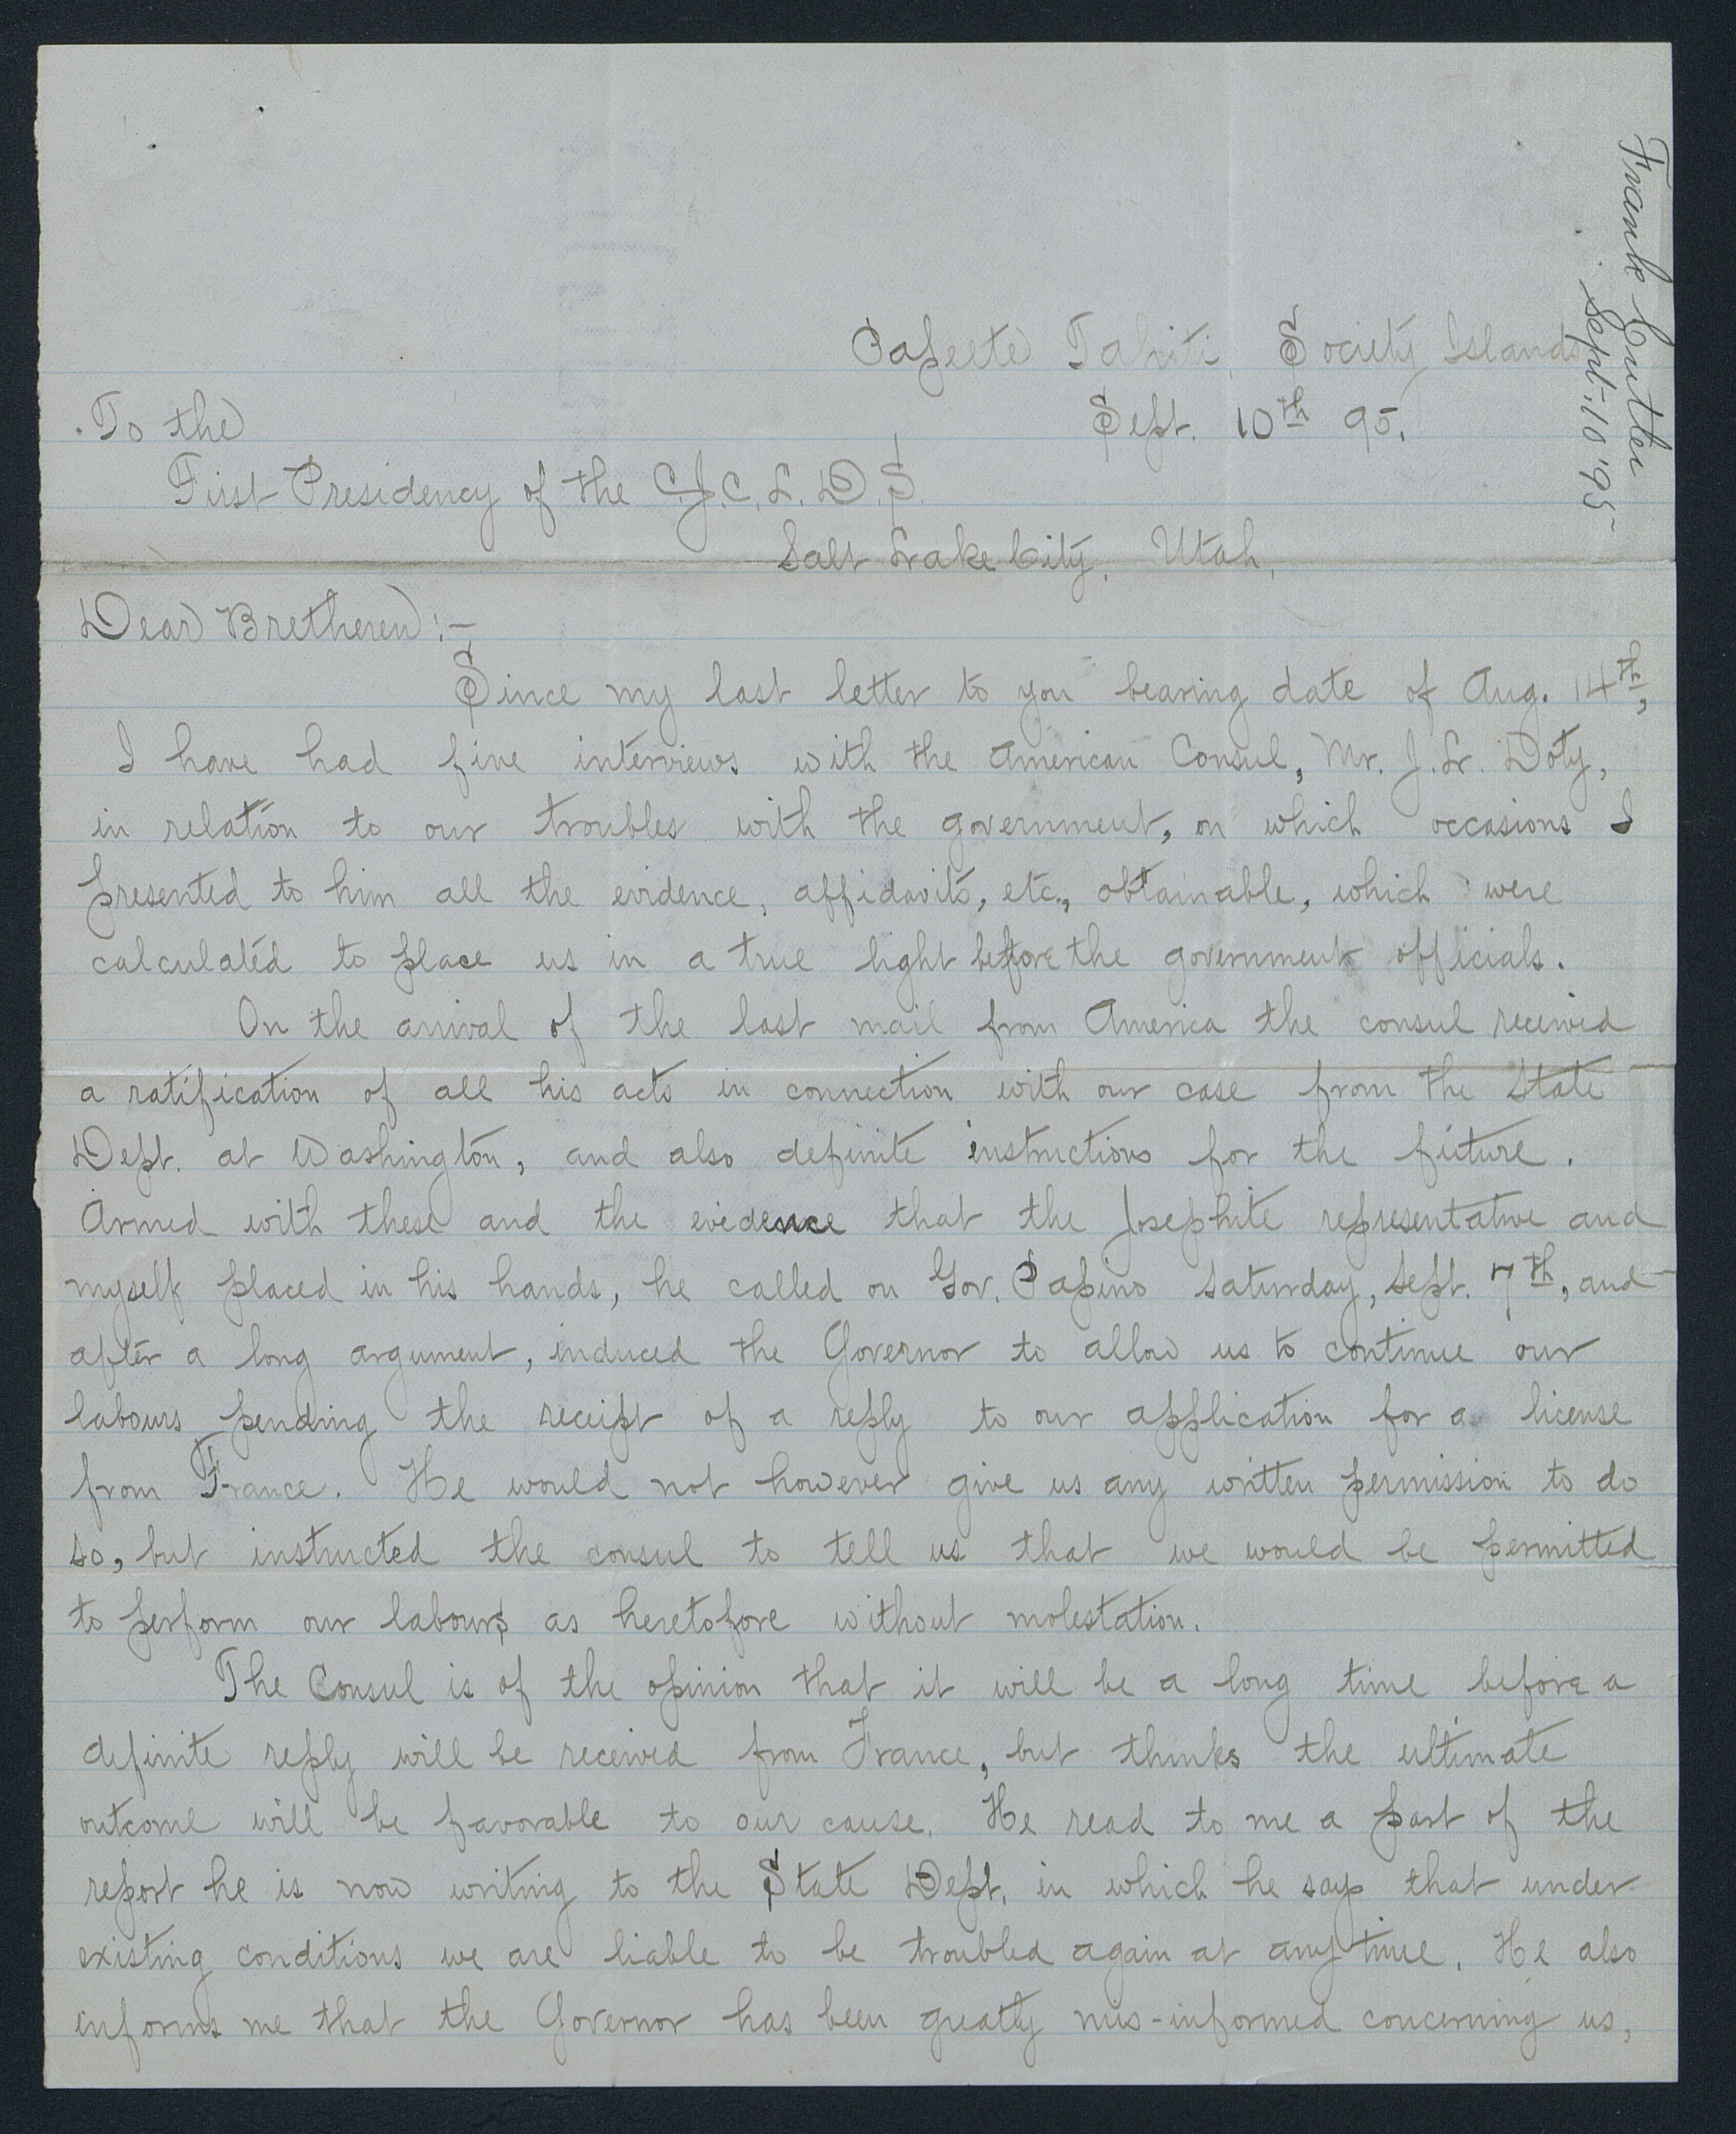 Frank Cutler
Sept. 10 '95
Papeete Tahiti, Society Islands
Sept. 10th 95.
To the
First Presidency of the C.J.C.L.D.S.
Salt Lake City, Utah,
Dear Bretheren:-
Since my last letter to you bearing date of Aug. 14th,
I have had five interviews with the American Consul, Mr. J. L. Doty,
in relation to our troubles with the government, on which occasions I
presented to him all the evidence, affidavits, etc., obtainable, which were
calculated to place us in a true light before the government officials.
On the arrival of the last mail from America the consul received
a ratification of all his acts in connection with our case from the State
Dept. at Washington, and also definite instructions for the future.
Armed with these and the evidence that the Josephite representative and
myself placed in his hands, he called on Gov. Papino Saturday, Sept. 7th, and
after a long argument, induced the Governor to allow us to continue our
labours pending the receipt of a reply to our application for a license
from France. He would not however give us any written permission to do
so, but instructed the consul to tell us that we would be permitted
to perform our labours as heretofore without molestation.
The Consul is of the opinion that it will be a long time before a
definite reply will be received from France, but thinks the ultimate
outcome will be favorable to our cause. He read to me a part of the
report he is now writing to the State Dept. in which he says that under
existing conditions we are liable to be troubled again at any time. He also
informs me that the Governor has been greatly mis-informed concerning us,